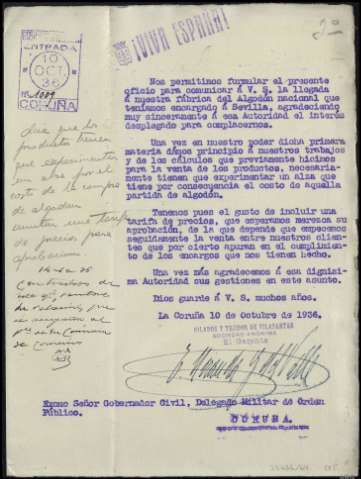 ENTRADA
10
OCT.
36
CORUÑA
¡VIVA ESPAÑA!
Nos permitimos formular el presente
oficio para comunicar á V. S. la llegada
á nuestra fábrica del Algodón nacional que
teníamos encargado á Sevilla, agradeciendo
muy sinceramente á esa Autoridad el interés
desplegado para complacernos.
Una vez en nuestro poder dicha primera
materia damos principio á nuestros trabajos
y de los cálculos que previamente hicimos
para la venta de los productos, necesariamente
tienen que experimentar un alza que
tiene por consecuencia el costo de aquella
partida de algodón.
Tenemos pues el gusto de incluir una
tarifa de precios, que esperamos merezca su
aprobación, de la que depende que empecemos
seguidamente la venta entre nuestros clientes
que por cierto apuran en el cumplimiento
de los encargos que nos tienen hecho.
Una vez más agradecemos á esa dignísima
Autoridad sus gestiones en este asunto.
Dios guarde á V. S. muchos años.
La Coruña 10 de Octubre de 1936.
HILADOS Y TEJIDOS DE VILASANTAR
SOCIEDAD ANÓNIMA
El Gerente
Excmo Señor Gobernador Civil, Delegado Militar de Orden
Público.
CORUÑA.
que los
productos tienen
que experimentar
un alza por el
costo de la compra
de algodon
una tarifa
de precios para
aprobacion